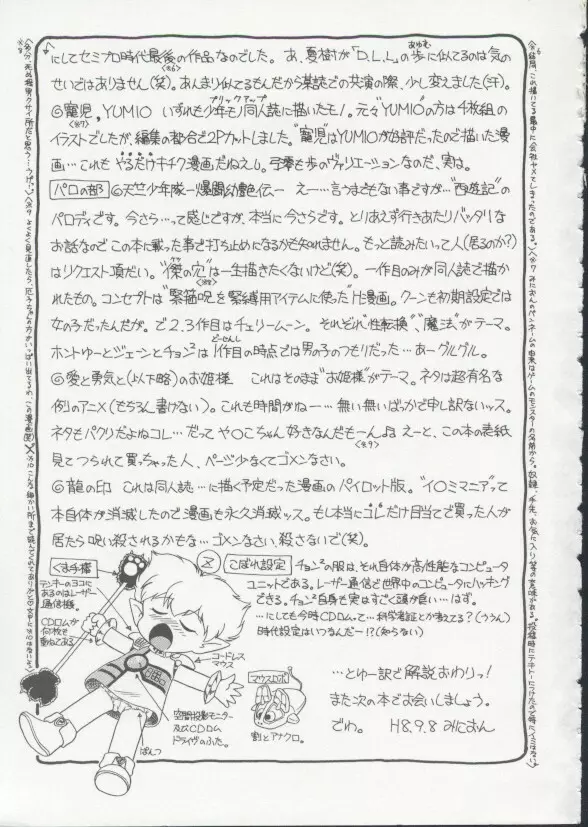 にしてセミプロ時代最後の作品なのでした。あ、夏樹が「D.L.L」の歩に似てるのは気の
せいではありません(笑)。あんまり似てるもんだから某誌での共演の際、少し変えました(汗)
◎寵児，YUMIO いずれも少年モノ同人誌に描いたモノ。元々"YUMIO"の方は千枚組の
イラストでしたが、編集の都合で2Pカットしました。"寵児"はYUMIOが好評だったので描いた漫
画…これもやるだけキチク漫画だねえ。弓雫も歩のヴァリエーションなのだ、実は。
パロの部 ◎天竺少年隊ー爆闘幼艶伝ー えー…言うまでもない事ですが…"西遊記"の
パロディです。今さら…って感じですが、本当に今さらです。とりあえず行きあたりバッタリな
お話なのでこの本に載った事で打ち止めになるかも知れません。もっと読みたいって人(居るのか?)
はリクエスト頂だい。"傑の穴"は一生描きたくないけど(笑)。一作目のみが同人誌で描か
れたもの。コンセプトは"緊箍呪を緊縛用アイテムに使った"H漫画。クーンも初期設定では
女の子だったんだが。で2,3作目はチェリームーン。それぞれ"性転換"、"魔法"がテーマ。
ホントゆーとジェーンとチョン²は1作目の時点では男の子のつもりだった…あーグルグル。
◎愛と勇気と(以下略)のお姫様 これはそのまま"お姫様"がテーマ。ネタは超有名な
例のアニメ(もちろん書けない)。これも時間がねー…無い無いばっかで申し訳ないッス。
ネタもパクリだよねコレ…だってや〇こちゃん好きなんだもーん♪ えーと、この本の表紙
見てつられて買っちゃった人、ページ少なくてゴメンなさい。
◎龍の印 これは同人誌…に描く予定だった漫画のパイロット版。"イ〇ミマニア"って
本自体が消滅したので漫画も永久消滅ッス。もし本当にコレだけ目当てで買った人が
居たら呪い殺されるかもな…ゴメンなさい、殺さないで(笑)。
こぼれ設定 チョン²の服は、それ自体が高性能なコンピュータ
ユニットである。レーザー通信で世界中のコンピュータにハッキング
できる。チョン²自身も実はすごく頭が良い…はず。
…にしても今時CDロムって…科学考証とか考えてる?(ううん)
時代設定はいつなんだー!?(知らない)
くま手棒
テンキーのヨコに
あるのはレーザー
通信機。
CDロムが
何枚も
重ねてある
コードレス
マウス
空間投影モニター
及びCDロム
ドライヴのふた。
ぱんつ
マウスロボ
割とアナクロ。
…とゆー訳で解説おわりっ!
また次の本でお会いしましょう。
でわ。 H8.9.8 みにおん